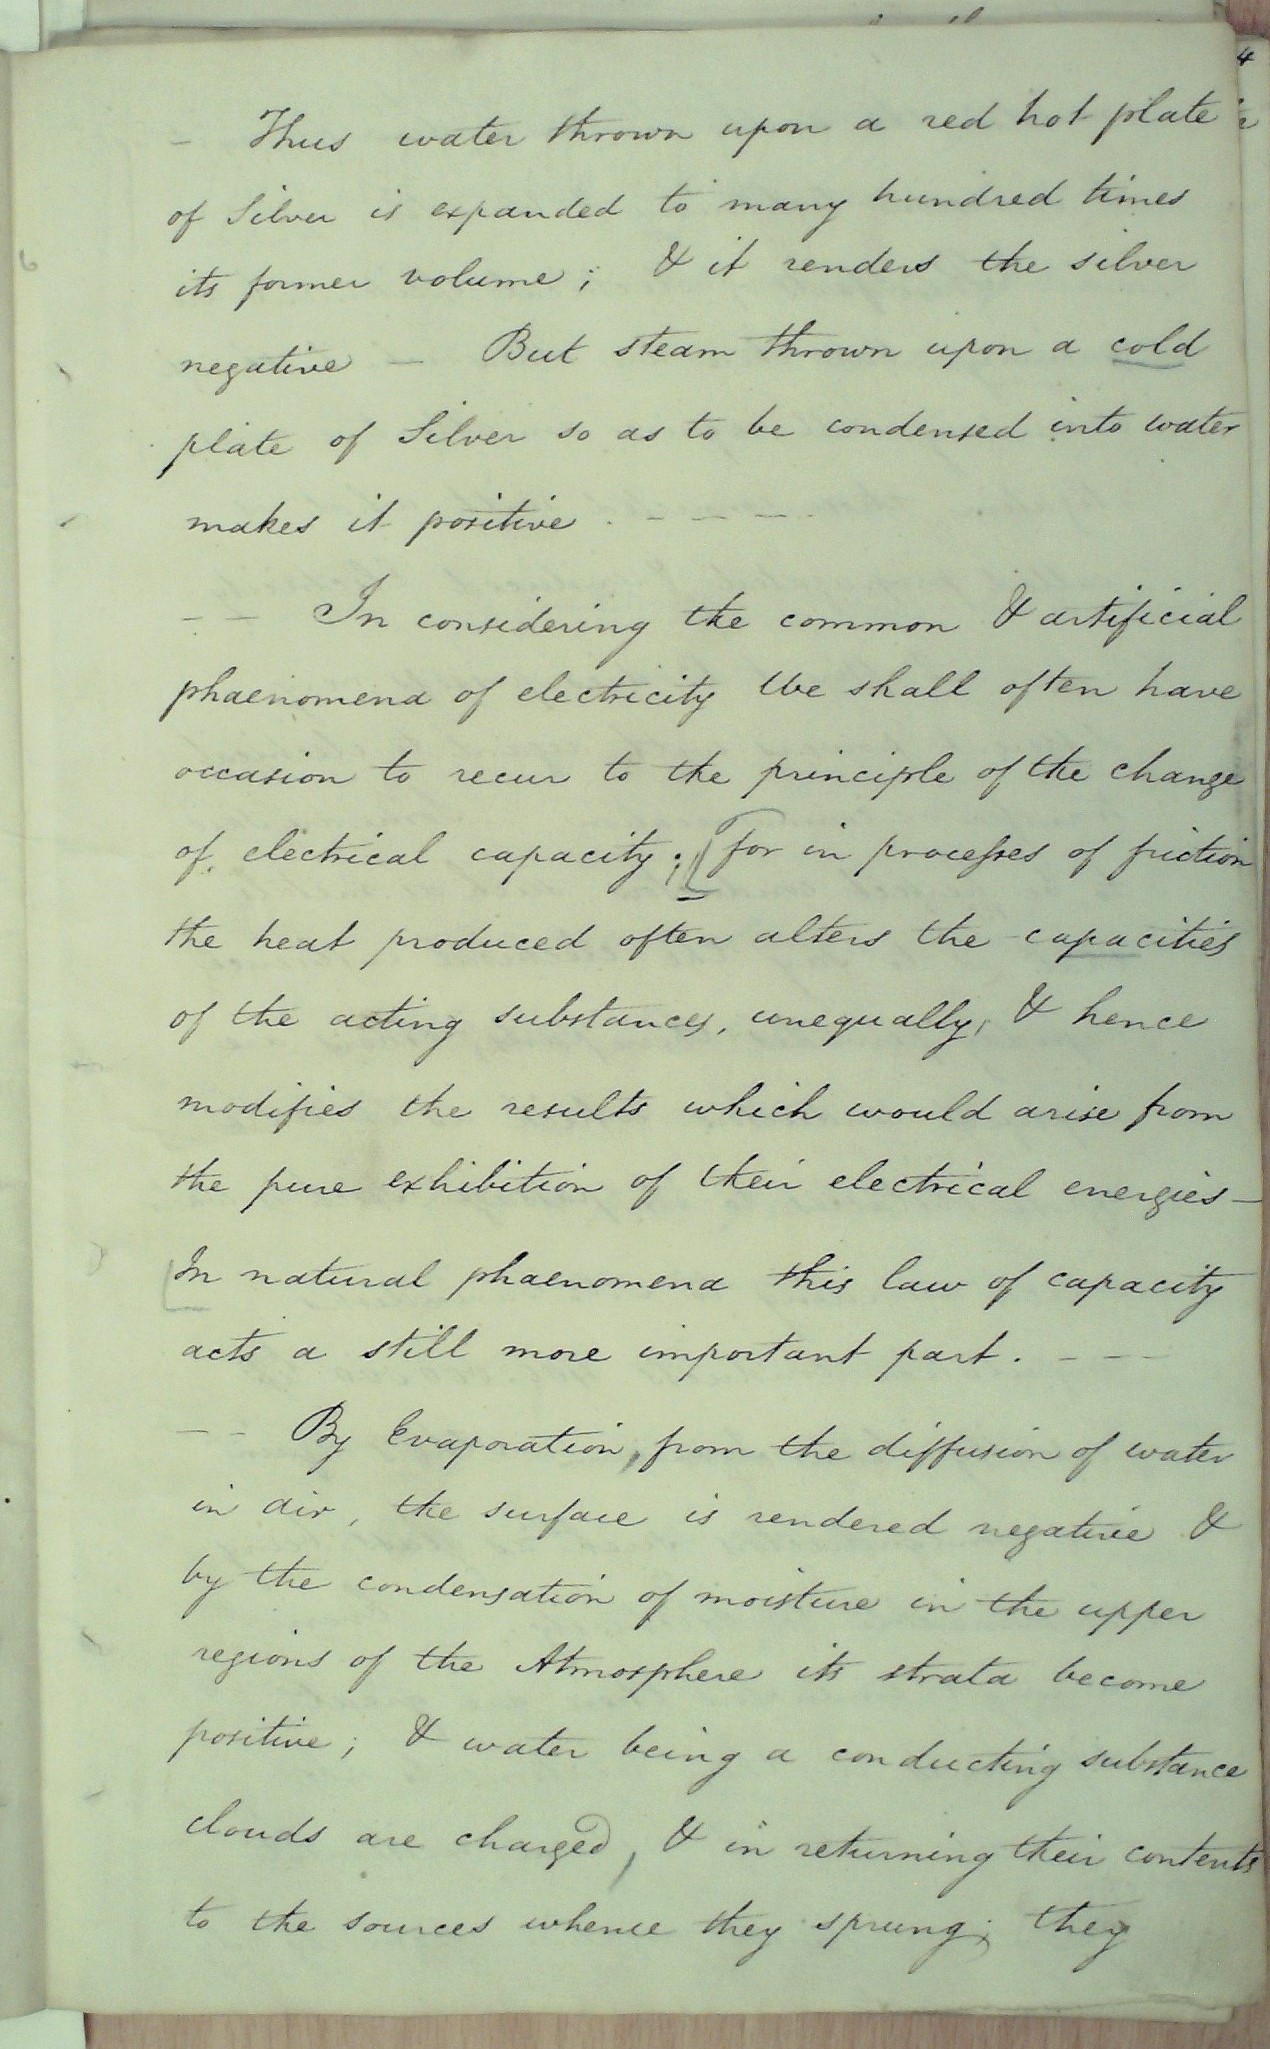 4
– Thus water thrown upon a red hot plate
of Silver is expanded to many hundred times
its former volume; & it renders the silver
negative – But steam thrown upon a cold
plate of Silver so as to be condensed into water
makes it positive. – – – –
– – In considering the common & artificial
phaenomena of electricity We shall often have
occasion to recur to the principle of the change
of electrical capacity; [for in processes of friction
the heat produced often alters the capacities
of the acting substances, unequally, & hence
modifies the results which would arise from
the pure exhibition of their electrical energies –
[In natural phaenomena this law of capacity
acts a still more important part. – – –
– – By Evaporation, from the diffusion of water
in air, the surface is rendered negative &
by the condensation of moisture in the upper
regions of the Atmosphere its strata become
positive; & water being a conducting substance
clouds are charged, & in returning their contents
to the sources whence they sprung; they